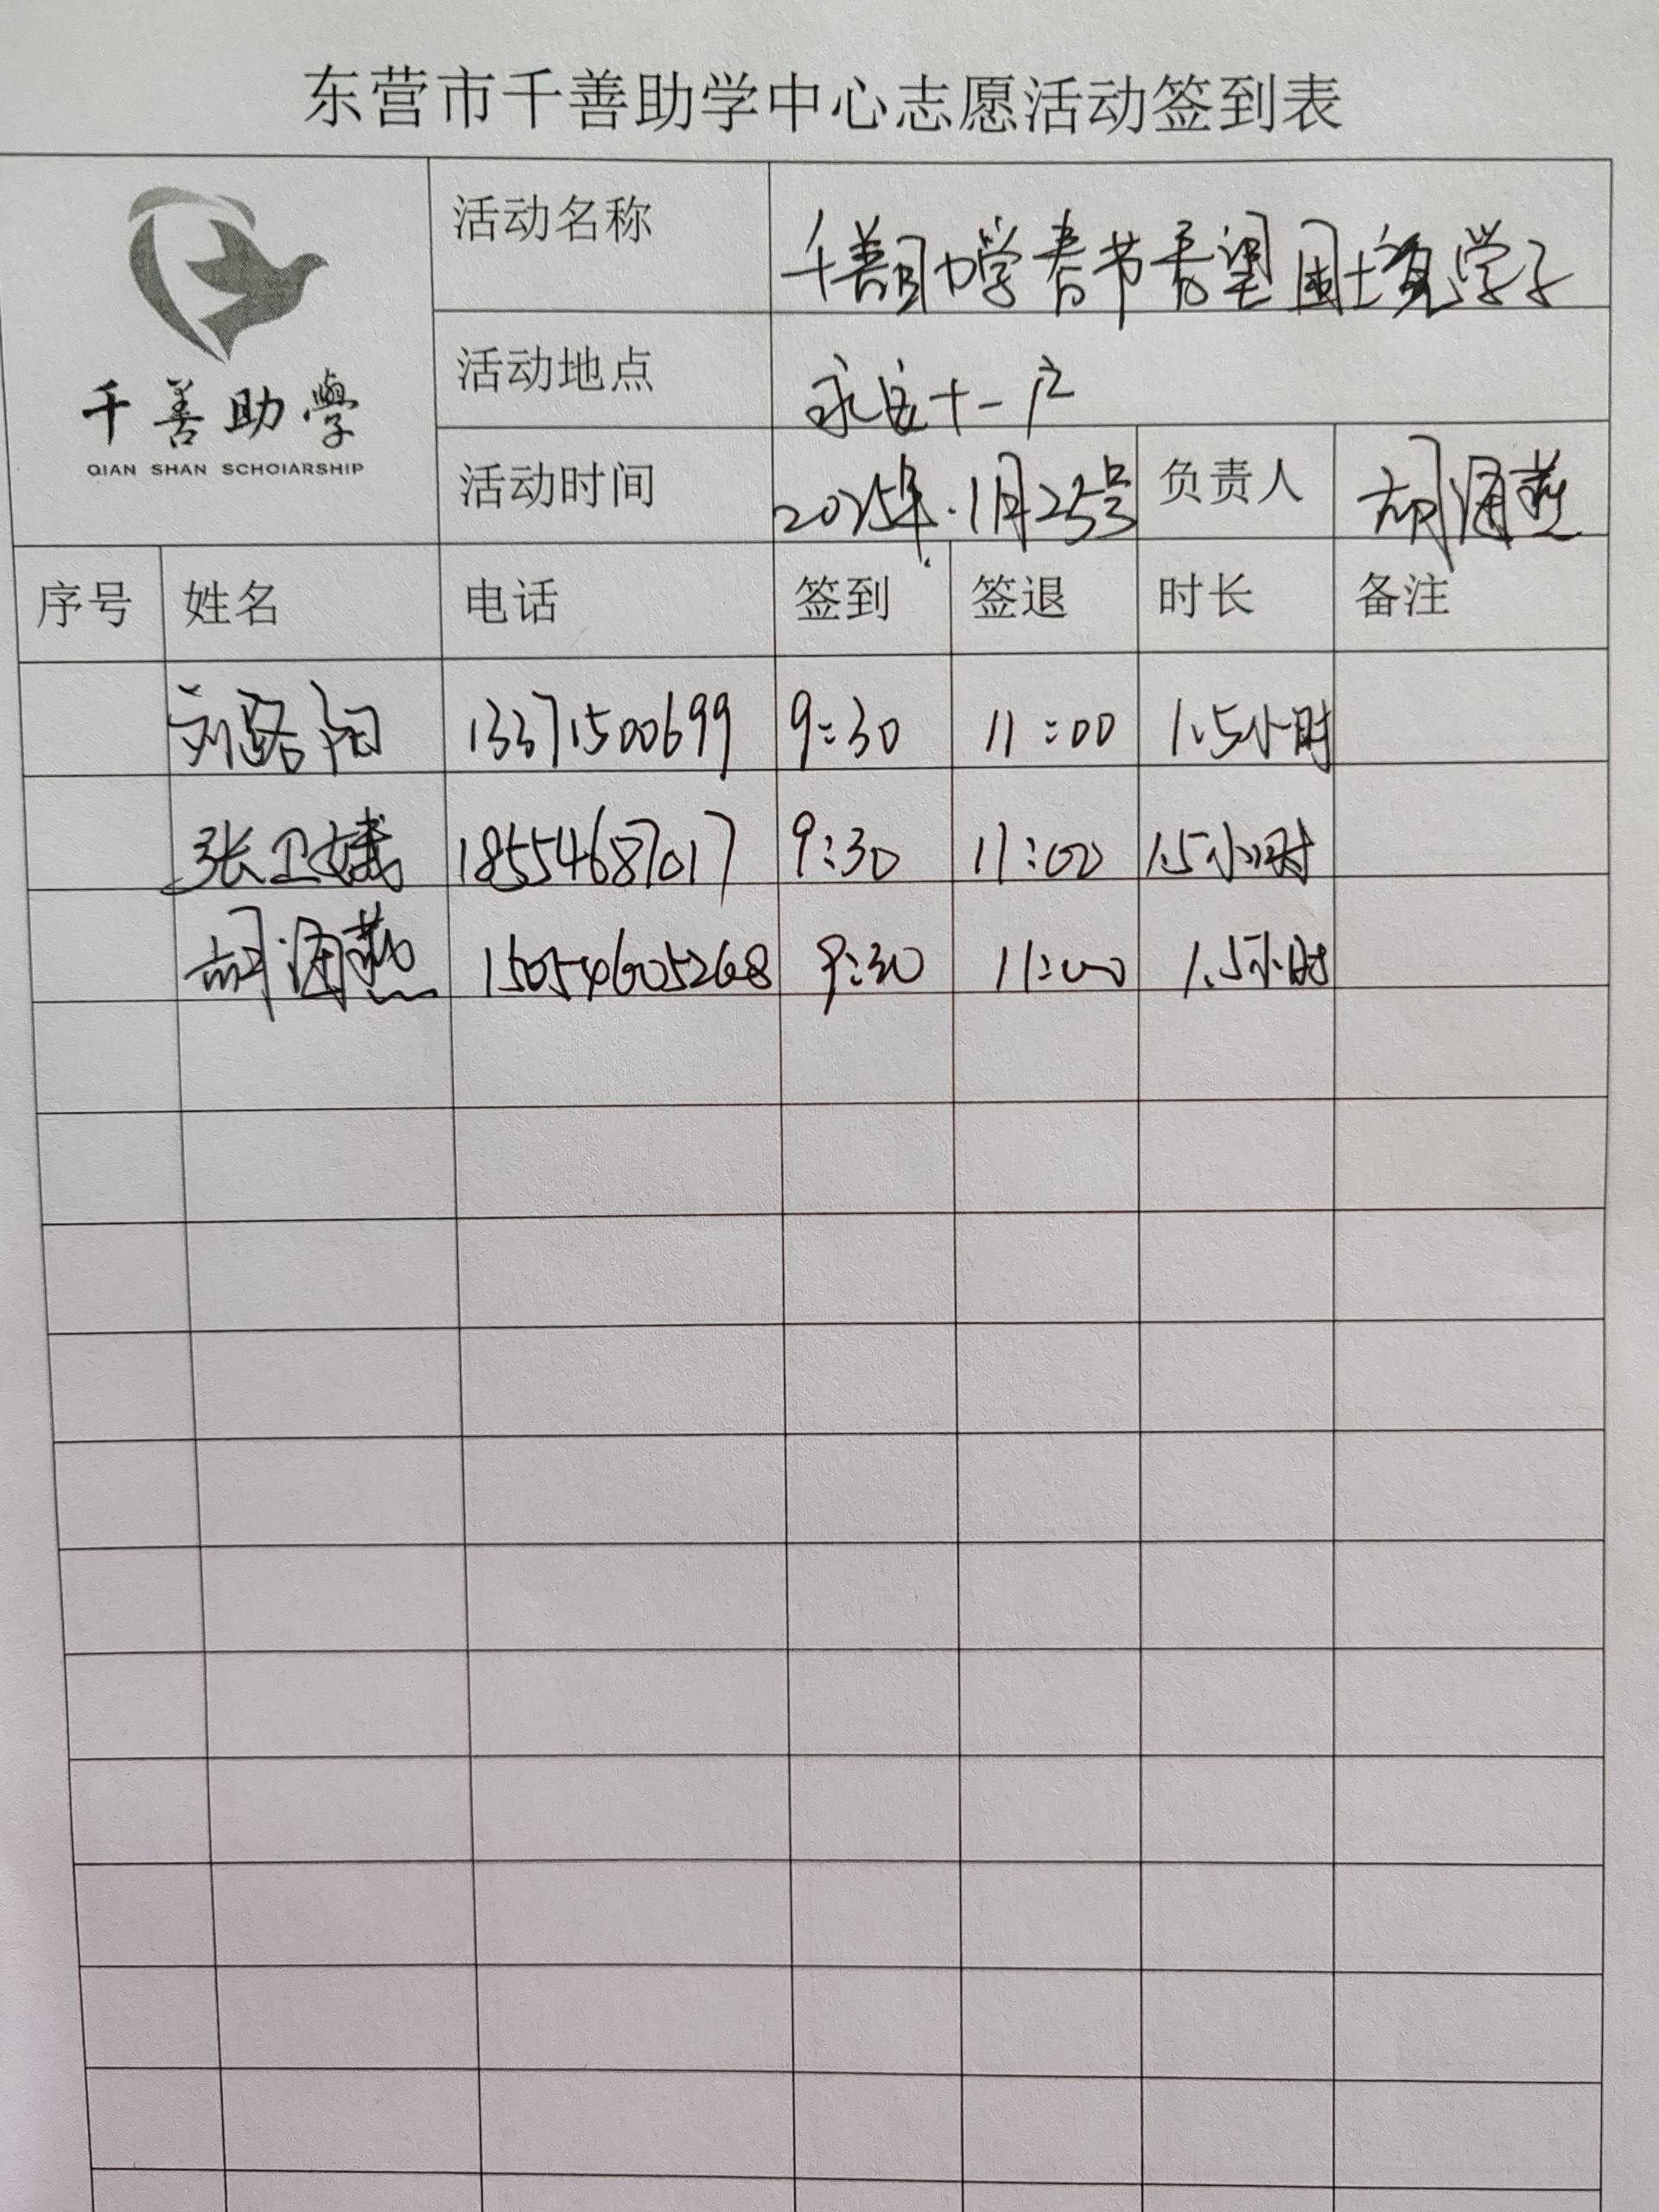 东营市千善助学中心志愿活动签到表
千善助學
QIAN SHAN SCHOIARSHIP
活动名称 千善助学春节看望困境学子
活动地点 十一户
活动时间 2025年.1月25号 负责人 胡海燕
序号 姓名 电话 签到 签退 时长 备注
刘路阳 13371500699 9:30 11:00 1.5小时
张卫娥 18554687017 9:30 11:00 1.5小时
胡海燕 15054605268 9:30 11:00 1.5小时